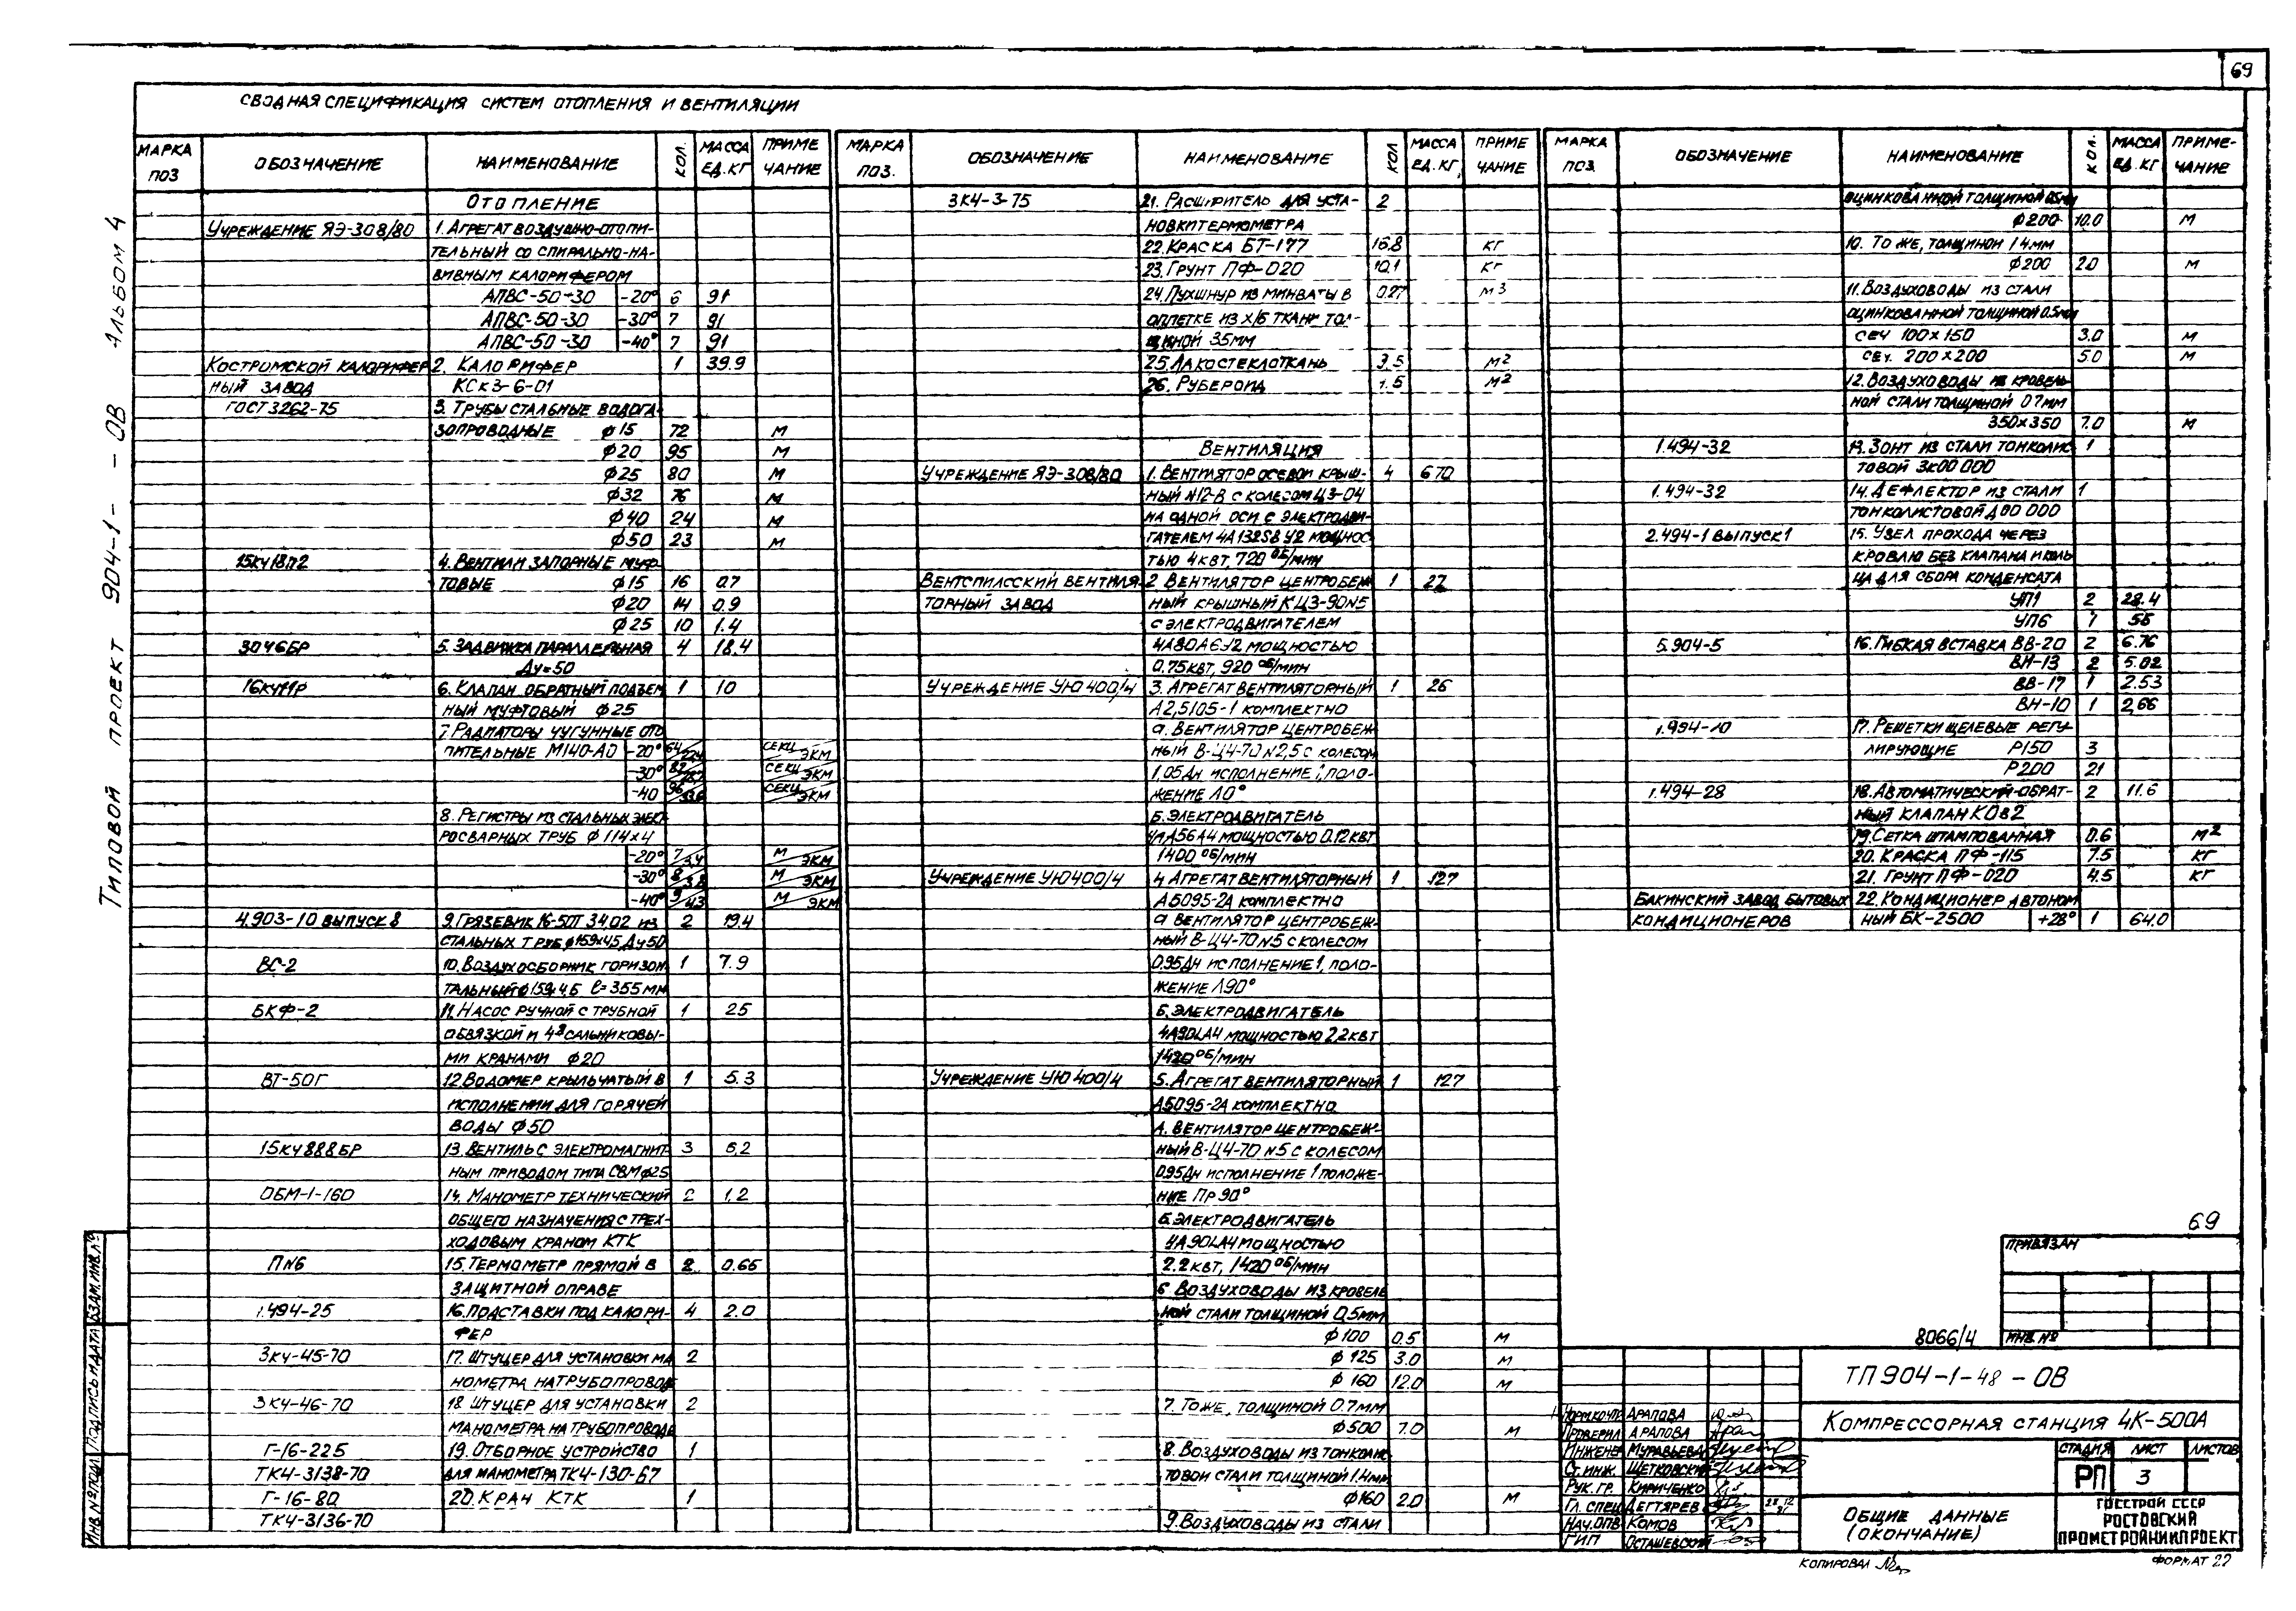 69
СВОДНАЯ СПЕЦИФИКАЦИЯ СИСТЕМ ОТОПЛЕНИЯ И ВЕНТИЛЯЦИИ
Типовой проект 904-1- - ОВ Альбом 4
МАРКА ПОЗ ОБОЗНАЧЕНИЕ НАИМЕНОВАНИЕ КОЛ. МАССА ЕД.КГ ПРИМЕЧАНИЕ
ОТОПЛЕНИЕ
УЧРЕЖДЕНИЕ ЯЭ-308/80 1. АГРЕГАТ ВОЗДУШНО-ОТОПИ-
ТЕЛЬНЫЙ СО СПИРАЛЬНО-НА-
ВИВНЫМ КАЛОРИФЕРОМ
АПВС-50-30 -20° 6 91
АПВС-50-30 -30° 7 91
АПВС-50-30 -40° 7 91
КОСТРОМСКОЙ КАЛОРИФЕР 2. КАЛОРИФЕР 1 39.9
НЫЙ ЗАВОД КСк3-6-01
ГОСТ 3262-75 3. ТРУБЫ СТАЛЬНЫЕ ВОДОГА-
ЗОПРОВОДНЫЕ ф15 72 М
ф20 95 М
ф25 80 М
ф32 76 М
ф40 24 М
ф50 23 М
15КЧ18П2 4. ВЕНТИЛИ ЗАПОРНЫЕ МУФ-
ТОВЫЕ ф15 16 0.7
ф20 14 0.9
ф25 10 1.4
30Ч6БР 5. ЗАДВИЖКА ПАРАЛЛЕЛЬНАЯ 4 18.4
Ду=50
16КЧ11Р 6. КЛАПАН ОБРАТНЫЙ ПОДЪЕМ 1 10
НЫЙ МУФТОВЫЙ ф25
7. РАДИАТОРЫ ЧУГУННЫЕ ОТО
ПИТЕЛЬНЫЕ М140-АО -20° 64/22.4 СЕКЦ/ЭКМ
-30° СЕКЦ/ЭКМ
-40 96/33.6 СЕКЦ/ЭКМ
8. РЕГИСТРЫ ИЗ СТАЛЬНЫХ ЭЛЕКТ
РОСВАРНЫХ ТРУБ ф 114х4
-20° 7/3.4 М/ЭКМ
-30° 8/3.8 М/ЭКМ
-40° 9/4.3 М/ЭКМ
4.903-10 ВЫПУСК 8 9. ГРЯЗЕВИК 16-50Т 34.02 ИЗ 2 19.4
СТАЛЬНЫХ ТРУБ ф159х4.5 Ду50
ВС-2 10. ВОЗДУХОСБОРНИК ГОРИЗОН 1 7.9
ТАЛЬНЫЙ ф159х4.5 ℓ=355 мм
БКФ-2 11. НАСОС РУЧНОЙ С ТРУБНОЙ 1 25
ОБВЯЗКОЙ И 4я САЛЬНИКОВЫ-
МИ КРАНАМИ ф20
ВТ-50Г 12. ВОДОМЕР КРЫЛЬЧАТЫЙ В 1 5.3
ИСПОЛНЕНИИ ДЛЯ ГОРЯЧЕЙ
ВОДЫ ф50
15КЧ888БР 13. ВЕНТИЛЬ С ЭЛЕКТРОМАГНИТ- 3 6,2
НЫМ ПРИВОДОМ ТИПА СВМ ф25
ОБМ-1-160 14. МАНОМЕТР ТЕХНИЧЕСКИЙ 2 1,2
ОБЩЕГО НАЗНАЧЕНИЯ С ТРЕХ-
ХОДОВЫМ КРАНОМ КТК
ПN6 15. ТЕРМОМЕТР ПРЯМОЙ В 2 0.66
ЗАЩИТНОЙ ОПРАВЕ
1.494-25 16. ПОДСТАВКИ ПОД КАЛОРИ- 4 2.0
ФЕР
ЗКЧ-45-70 17. ШТУЦЕР ДЛЯ УСТАНОВКИ МА 2
НОМЕТРА НА ТРУБОПРОВОДЕ
ЗКЧ-46-70 18 ШТУЦЕР ДЛЯ УСТАНОВКИ 2
МАНОМЕТРА НА ТРУБОПРОВОДЕ
Г-16-225 19. ОТБОРНОЕ УСТРОЙСТВО 1
ТКЧ-3138-70 ДЛЯ МАНОМЕТРА ТКЧ-130-67
Г-16-80 20. КРАН КТК 1
ТКЧ-3136-70
МАРКА ПОЗ. ОБОЗНАЧЕНИЕ НАИМЕНОВАНИЕ КОЛ МАССА ЕД.КГ. ПРИМЕЧАНИЕ
ЗКЧ-3-75 21. РАСШИРИТЕЛЬ ДЛЯ УСТА- 2
НОВКИ ТЕРМОМЕТРА
22. КРАСКА БТ-177 16.8 КГ
23. ГРУНТ ПФ-020 10.1 КГ
24. ПУХШНУР ИЗ МИНВАТЫ В 0.27 М3
ОПЛЕТКЕ ИЗ Х/Б ТКАНИ ТОЛ-
ЩИНОЙ 35мм
25. ЛАКОСТЕКЛОТКАНЬ 3.5 М2
26. РУБЕРОИД 1.5 М2
ВЕНТИЛЯЦИЯ
УЧРЕЖДЕНИЕ ЯЭ-308/80 1. ВЕНТИЛЯТОР ОСЕВОЙ КРЫШ- 4 670
НЫЙ N12-В С КОЛЕСОМ ЦЗ-04
НА ОДНОЙ ОСИ С ЭЛЕКТРОДВИ-
ГАТЕЛЕМ 4А132S8 У2 МОЩНОС
ТЬЮ 4 КВТ, 720 ОБ/МИН
ВЕНТСПИЛССКИЙ ВЕНТИЛЯ- 2 ВЕНТИЛЯТОР ЦЕНТРОБЕЖ 1 27
ТОРНЫЙ ЗАВОД НЫЙ КРЫШНЫЙ КЦ3-90N5
С ЭЛЕКТРОДВИГАТЕЛЕМ
4А80А6У2 МОЩНОСТЬЮ
0.75КВТ, 920 ОБ/МИН
УЧРЕЖДЕНИЕ УЮ 400/4 3. АГРЕГАТ ВЕНТИЛЯТОРНЫЙ 1 26
А2,5105-1 КОМПЛЕКТНО
а. ВЕНТИЛЯТОР ЦЕНТРОБЕЖ
НЫЙ В-Ц4-70 N2,5 С КОЛЕСОМ
1,05Дн ИСПОЛНЕНИЕ 1, ПОЛО-
ЖЕНИЕ Л0°
Б. ЭЛЕКТРОДВИГАТЕЛЬ
4АА56А4 МОЩНОСТЬЮ 0.12КВТ
1400 ОБ/МИН
УЧРЕЖДЕНИЕ УЮ400/4 4 АГРЕГАТ ВЕНТИЛЯТОРНЫЙ 1 127
А5095-2А КОМПЛЕКТНО
а ВЕНТИЛЯТОР ЦЕНТРОБЕЖ-
НЫЙ В-Ц4-70 N5 С КОЛЕСОМ
0.95Дн ИСПОЛНЕНИЕ 1, ПОЛО-
ЖЕНИЕ Л90°
Б. ЭЛЕКТРОДВИГАТЕЛЬ
4А90LА4 МОЩНОСТЬЮ 2,2 КВТ
1420 ОБ/МИН
УЧРЕЖДЕНИЕ УЮ 400/4 5. АГРЕГАТ ВЕНТИЛЯТОРНЫЙ 1 127
А5095-2А КОМПЛЕКТНО
А. ВЕНТИЛЯТОР ЦЕНТРОБЕЖ-
НЫЙ В-Ц4-70 N5 С КОЛЕСОМ
0.95Дн ИСПОЛНЕНИЕ 1 ПОЛОЖЕ-
НИЕ ПР 90°
Б. ЭЛЕКТРОДВИГАТЕЛЬ
4А90LА4 МОЩНОСТЬЮ
2.2 КВТ, 1420 ОБ/МИН
6 ВОЗДУХОВОДЫ ИЗ КРОВЕЛЬ
НОЙ СТАЛИ ТОЛЩИНОЙ 0,5мм
ф100 0.5 М
ф 125 3.0 М
ф 160 12.0 М
7. ТО ЖЕ, ТОЛЩИНОЙ 0.7 мм
ф500 7.0 М
8. ВОЗДУХОВОДЫ ИЗ ТОНКОЛИС
ТОВОЙ СТАЛИ ТОЛЩИНОЙ 1.4мм
ф160 2.0 М
9. ВОЗДУХОВОДЫ ИЗ СТАЛИ
МАРКА ПОЗ. ОБОЗНАЧЕНИЕ НАИМЕНОВАНИЕ КОЛ. МАССА ЕД.КГ ПРИМЕ-ЧАНИЕ
ОЦИНКОВАННОЙ ТОЛЩИНОЙ 0.5мм
ф200 10.0 М
10. ТО ЖЕ, ТОЛЩИНОЙ 1.4мм
ф200 2.0 М
11. ВОЗДУХОВОДЫ ИЗ СТАЛИ
ОЦИНКОВАННОЙ ТОЛЩИНОЙ 0.5мм
СЕЧ 100х150 3.0 М
СЕЧ. 200х200 5.0 М
12. ВОЗДУХОВОДЫ ИЗ КРОВЕЛЬ
НОЙ СТАЛИ ТОЛЩИНОЙ 0.7мм
350х350 7.0 М
1.494-32 13. ЗОНТ ИЗ СТАЛИ ТОНКОЛИС 1
ТОВОЙ ЗК00 000
1.494-32 14. ДЕФЛЕКТОР ИЗ СТАЛИ 1
ТОНКОЛИСТОВОЙ Д 00 000
2.494-1 ВЫПУСК 1 15. УЗЕЛ ПРОХОДА ЧЕРЕЗ
КРОВЛЮ БЕЗ КЛАПАНА И КОЛЬ
ЦА ДЛЯ СБОРА КОНДЕНСАТА
УП1 2 28.4
УП6 1 55
5.904-5 16. ГИБКАЯ ВСТАВКА ВВ-20 2 6.76
ВН-13 2 5.02
ВВ-17 1 2.53
ВН-10 1 2,66
1.494-10 17. РЕШЕТКИ ЩЕЛЕВЫЕ РЕГУ-
ЛИРУЮЩИЕ Р150 3
Р200 21
1.494-28 18. АВТОМАТИЧЕСКИЙ ОБРАТ- 2 11.6
НЫЙ КЛАПАН КОв2
19. СЕТКА ШТАМПОВАННАЯ 0.6 М2
20. КРАСКА ПФ-115 7.5 КГ
21. ГРУНТ ПФ-020 4.5 КГ
БАКИНСКИЙ ЗАВОД БЫТОВЫХ 22. КОНДИЦИОНЕР АВТОНОМ
КОНДИЦИОНЕРОВ НЫЙ БК-2500 +28° 1 64.0
69
ПРИВЯЗАН
ИНВ №
8066/4
ТП 904-1-48-ОВ
КОМПРЕССОРНАЯ СТАНЦИЯ 4К-500А
НОРМ.КОНТР АРАПОВА
ПРОВЕРИЛ АРАПОВА
ИНЖЕНЕР МУРАВЬЕВА
СТ.ИНЖ. ЩЕТКОВСКИЙ
РУК. ГР. КИРИЧЕНКО
ГЛ. СПЕЦ ДЕГТЯРЕВ
НАЧ.ОПВ КОМОВ
ГИП ОСТАШЕВСКИЙ
СТАДИЯ ЛИСТ ЛИСТОВ
РП 3
ОБЩИЕ ДАННЫЕ
(ОКОНЧАНИЕ)
ГОССТРОЙ СССР
РОСТОВСКИЙ
ПРОМСТРОЙНИИПРОЕКТ
КОПИРОВАЛ
ФОРМАТ 22
ИНВ № ПОДЛ ПОДПИСЬ И ДАТА ВЗАМ.ИНВ.№